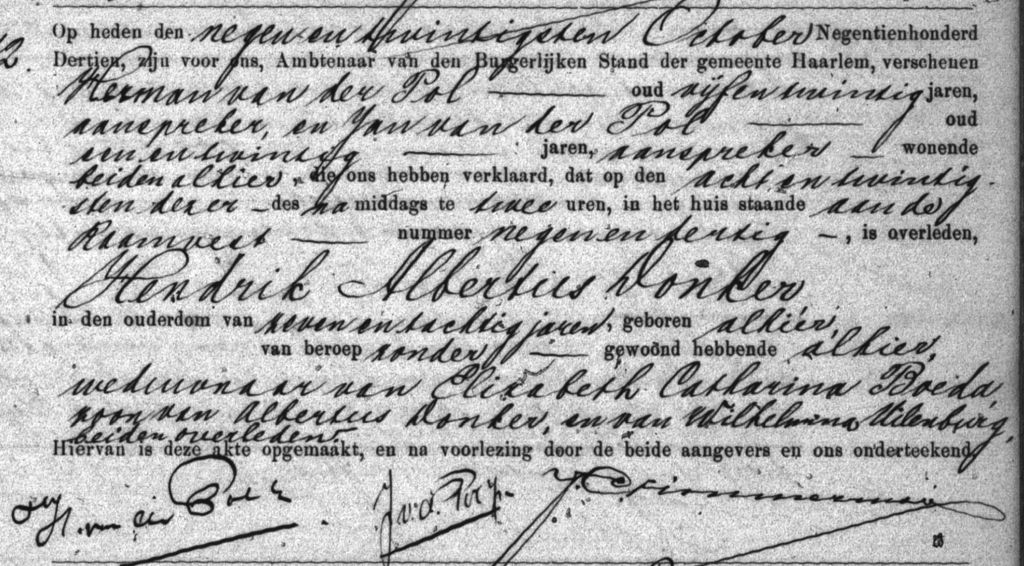 Op heden den negen en twintigsten October Negentienhonderd
2. Dertien, zijn voor ons, Ambtenaar van den Burgerlijken Stand der gemeente Haarlem, verschenen
Herman van der Pol oud vijfentwintig jaren,
aanspreker, en Jan van der Pol oud
een en twintig jaren, aanspreker wonende
beiden alhier, die ons hebben verklaard, dat op den acht en twintig-
sten dezer des namiddags te twee uren, in het huis staande aan de
Raamvest nummer negen en fertig, is overleden,
Hendrik Albertus Donker
in den ouderdom van zeven en tachtig jaren, geboren alhier,
van beroep zonder gewoond hebbende alhier,
weduwnaar van Elizabeth Catharina Boeda,
zoon van Albertus Donker, en van Wilhelmina Uilenburg,
beiden overleden.
Hiervan is deze akte opgemaakt, en na voorlezing door de beide aangevers en ons onderteekend
H. van der Pol J. v. d. Pol J C Zimmerman